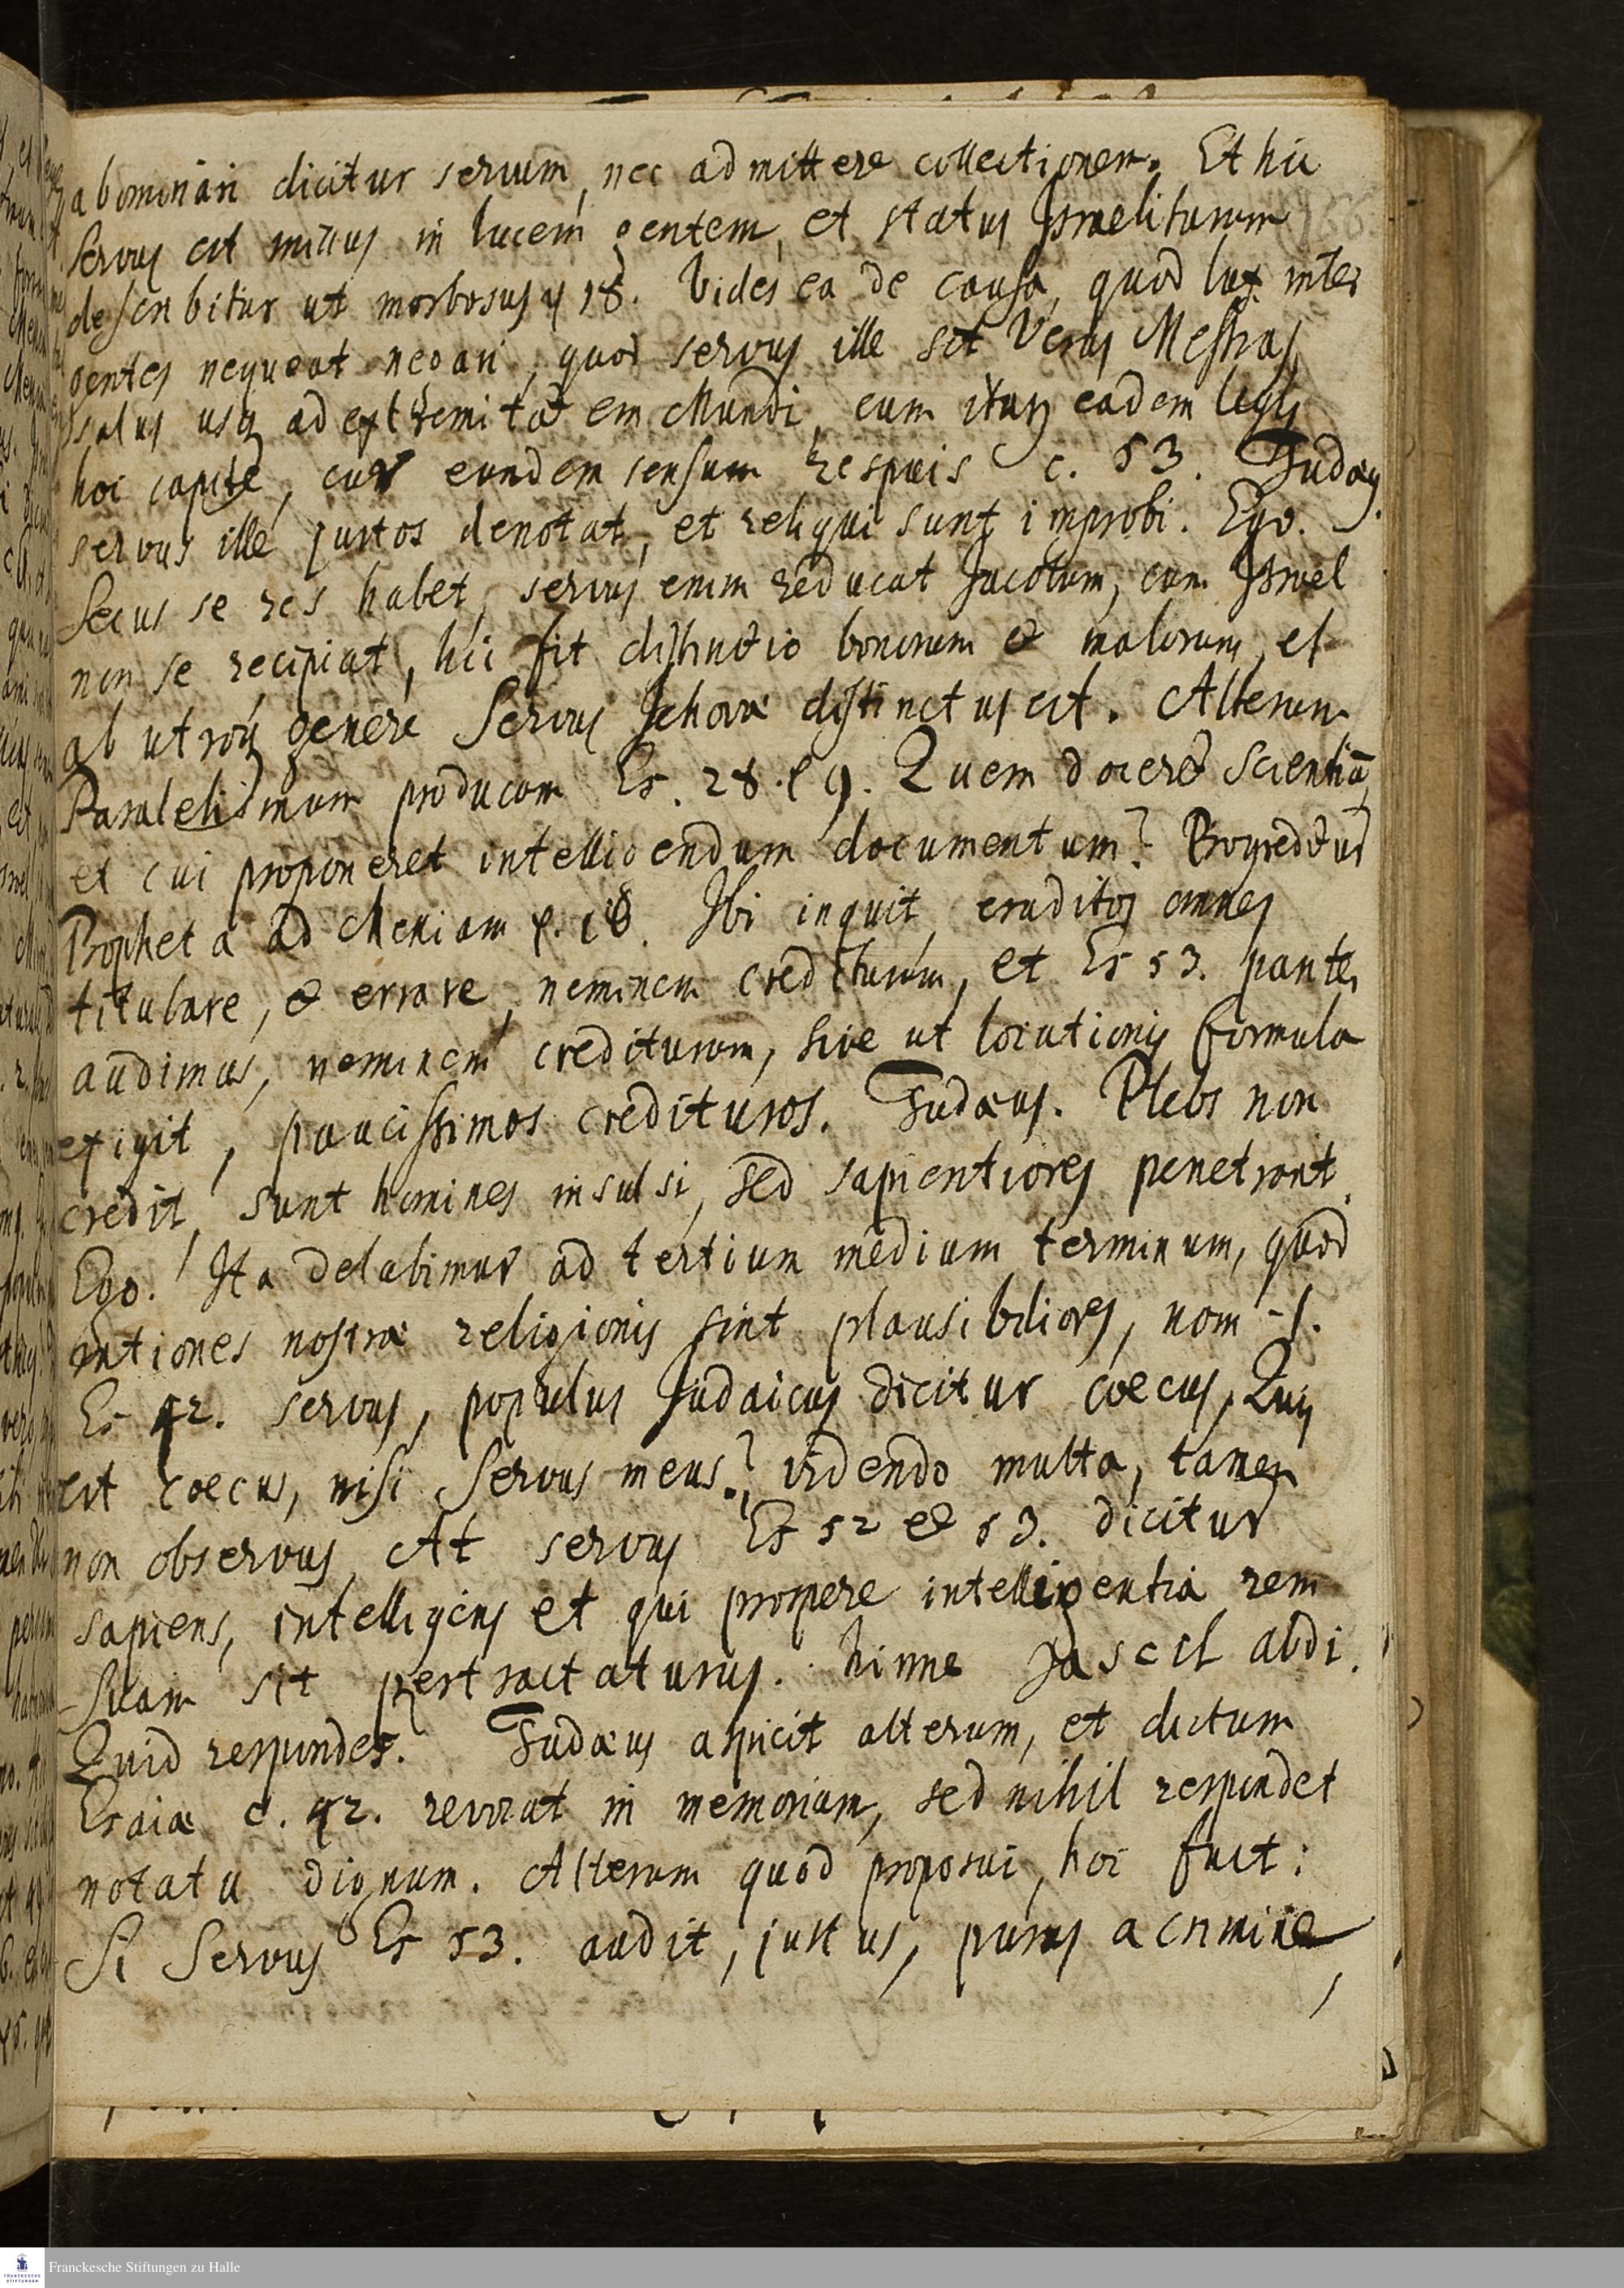 abominari dicitur servum, nec admittere collectionem. Et hic
servus est missus in lucem gentem, et status Israelitarum
describitur ut morbosus 18. Vides ea de causa, quod lux inter
gentes nequeat negari, quod servus ille sit Verus Messias,
salus usq ad extremitatem Mundi, cum itaq eadem legis
hoc capite, cur eundem sensum respuis c. 53. Judaeus.
servus ille justos denotat, et reliqui sunt improbi. Ego.
Secus se res habet, servus enim reducat Jacobum, cum Israel
non se recipiat, hic fit distinctio bonorum et malorum, et
ab utroq genere Servus Jehovae distinctus est. Alterum
Paralelismum producam Es. 28. 9. Quem doceret scientiã,
et cui proponeret intelligendum documentum? Progreditur
Propheta ad Messiam 18. Ibi inquit, eruditos omnes
titubare, et errare, neminem crediturum, et Es 53. pariter
audimus, neminem crediturum, sive ut locutionis formula
exigit, paucissimos credituros. Judaeus. Plebs non
credit, sunt homines insulsi, sed sapientiores penetrant.
Ego. Ita delabimur ad tertium medium terminum, quod
rationes nostrae religionis sint plausibiliores, nom
Es 42. servus, populus Judaicus dicitur coecus, Quis
est coecus, nisi Servus meus? videndo multa, tamen
non observas, At servus Es 52 et 53. dicitur
sapiens, intelligens et qui prospere intelligentia rem
suam sit pertractaturus. hinne Jascil abdi.
Quid respondes. Judaeus aspicit alterum, et dictum
Esaiae c. 42. revocat in memoriam, sed nihil respondet
notatu dignum. Alterum quod proposui, hoc fuit:
Si Servus Es 53. audit, justus, purus a crimine,
Franckesche Stiftungen zu Halle